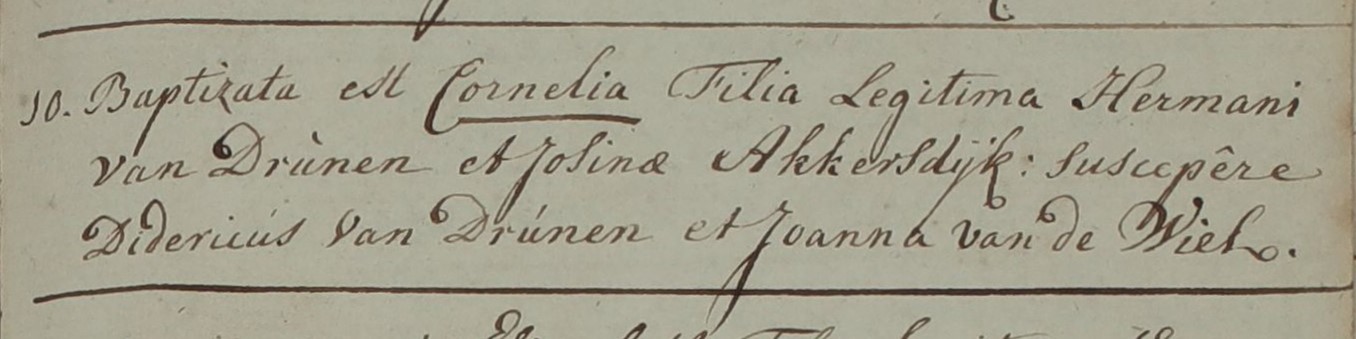 10. Baptizata est Cornelia Filia Legitima Hermani
van Drùnen et Josinæ Akkersdijk: suscepêre
Didericús Van Drúnen et Joanna van de Wiel.